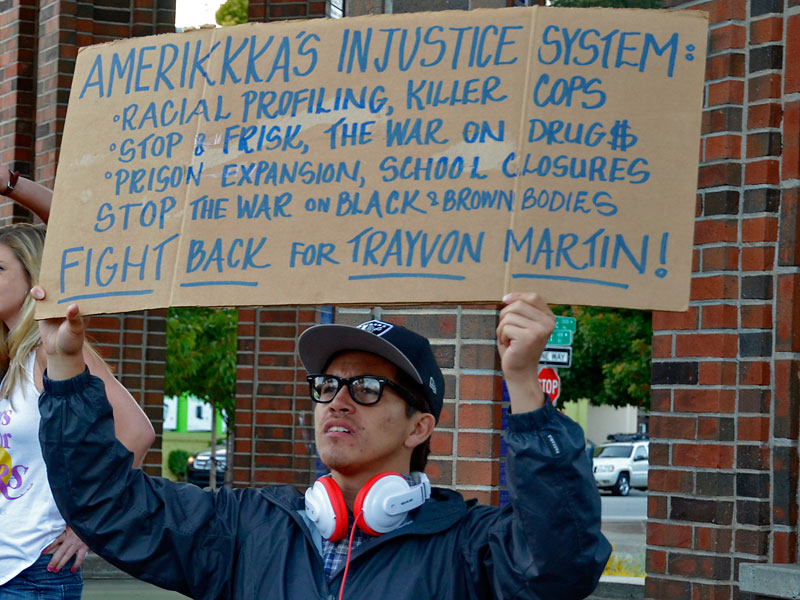 AMERIKKKA'S INJUSTICE SYSTEM:
•RACIAL PROFILING, KILLER COPS
•STOP & FRISK, THE WAR ON DRUG$
•PRISON EXPANSION, SCHOOL CLOSURES
STOP THE WAR ON BLACK & BROWN BODIES
FIGHT BACK FOR TRAYVON MARTIN!
WAY
STOP